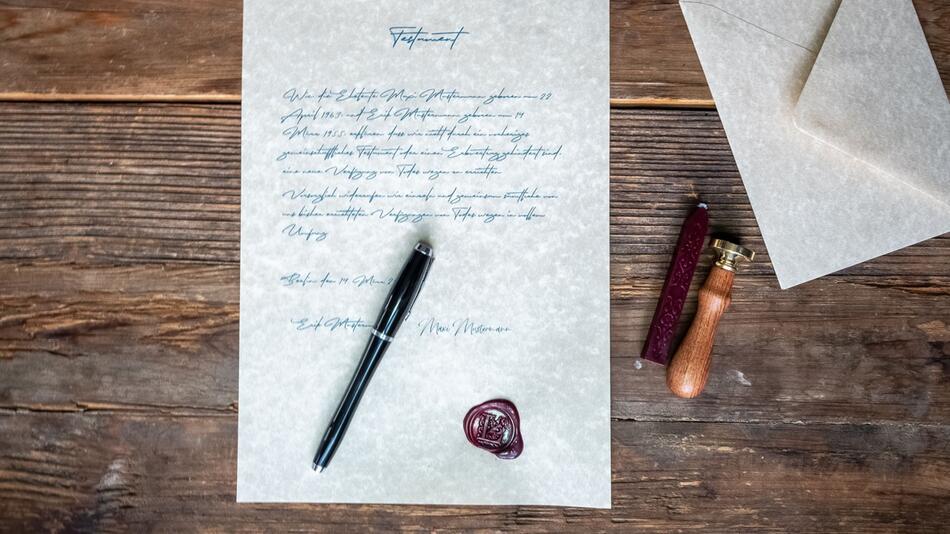 Testament
Wir die Eheleute Maxi Mustermann geboren am 22
April 1969 und Erik Mustermann geboren am 14
März 1955 erklären dass wir nicht durch ein vorheriges
gemeinschaftliches Testament oder einen Erbvertrag gehindert sind,
eine neue Verfügung von Todes wegen zu errichten
Vorsorglich widerrufen wir einzeln und gemeinsam sämtliche von
uns bisher errichteten Verfügungen von Todes wegen in vollem
Umfang
Berlin den 14 März 2
Erik Musterm
Maxi Mustermann